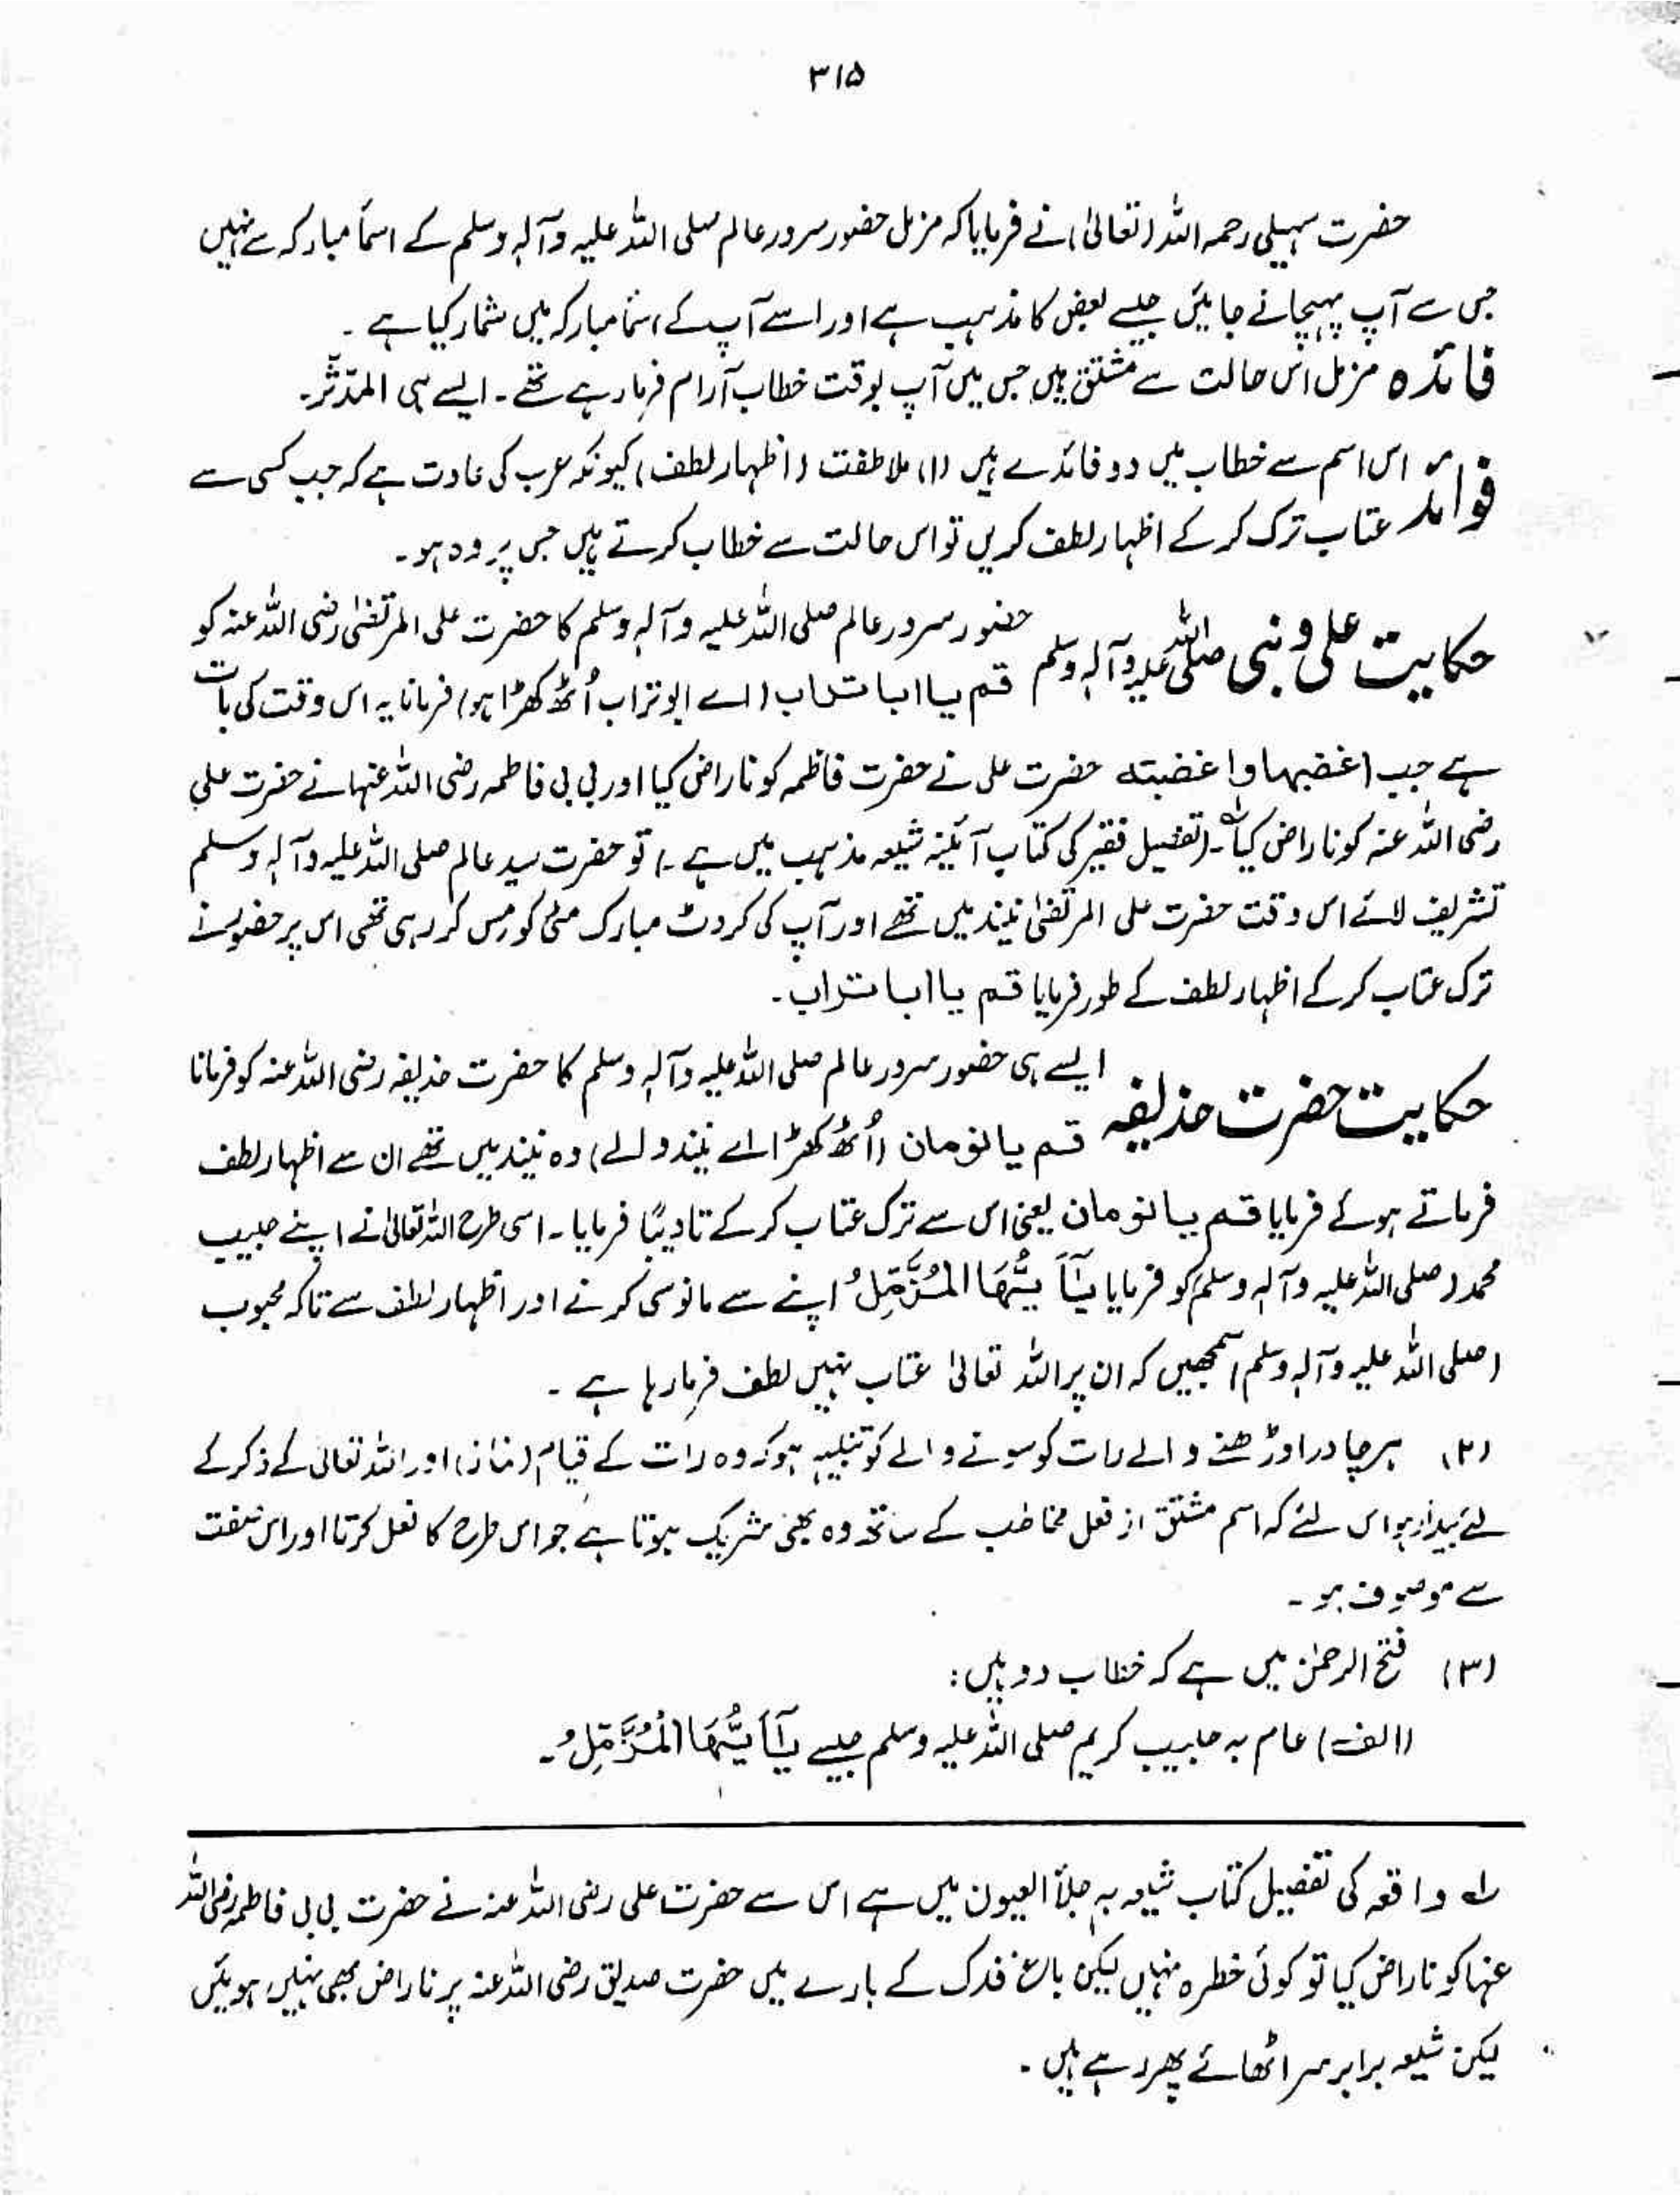 ۳۱۵
حضرت سہیلی رحمہ اللہ (تعالیٰ) نے فرمایا کہ مزمل حضور سرور عالم صلی اللہ علیہ وآلہٖ وسلم کے اسمأ مبارکہ سے نہیں
جس سے آپ پہچانے جائیں جیسے بعض کا مذہب ہے اور اسے آپ کے اسمأ مبارکہ میں شمار کیا ہے ۔
فائدہ مزمل اس حالت سے مشتق ہیں جس میں آپ بوقت خطاب آرام فرما رہے تھے ۔ ایسے ہی المدّثّر۔
فوائد اس اسم سے خطاب میں دو فائدے ہیں (۱) ملاطفت (اظہار لطف) کیونکہ عرب کی عادت ہے کہ جب کسی سے
عتاب ترک کر کے اظہار لطف کریں تو اس حالت سے خطاب کرتے ہیں جس پر وہ ہو۔
حکایت علی و نبی صلی اللہ علیہ وآلہٖ وسلم حضور سرور عالم صلی اللہ علیہ وآلہٖ وسلم کا حضرت علی المرتضیٰ رضی اللہ عنہ کو
قم یا ابا تراب (اے ابو تراب اُٹھ کھڑا ہو) فرمانا یہ اس وقت کی بات
ہے جب (غضبہا واغضبتہ حضرت علی نے حضرت فاطمہ کو ناراض کیا اور بی بی فاطمہ رضی اللہ عنہا نے حضرت علی
رضی اللہ عنہ کو ناراض کیا لہ ۔ (تفصیل فقیر کی کتاب آئینہ شیعہ مذہب میں ہے ۔) تو حضرت سید عالم صلی اللہ علیہ وآلہٖ وسلم
تشریف لائے اس وقت حضرت علی المرتضیٰ نیند میں تھے اور آپ کی کروٹ مبارک مٹی کو مس کر رہی تھی اس پر حضور نے
ترک عتاب کر کے اظہار لطف کے طور فرمایا قم یا ابا تراب ۔
حکایت حضرت حذیفہ ایسے ہی حضور سرور عالم صلی اللہ علیہ وآلہٖ وسلم کا حضرت حذیفہ رضی اللہ عنہ کو فرمانا
قم یا نومان (اُٹھ کھڑا اے نیند والے) وہ نیند میں تھے ان سے اظہار لطف
فرماتے ہوئے فرمایا قم یا نومان یعنی اس سے ترک عتاب کر کے تادیبًا فرمایا ۔ اسی طرح اللہ تعالیٰ نے اپنے حبیب
محمد (صلی اللہ علیہ وآلہٖ وسلم) کو فرمایا یٰٓاَیُّہَا الْمُزَّمِّلُ اپنے سے مانوسی کرنے اور اظہار لطف سے تاکہ محبوب
(صلی اللہ علیہ وآلہٖ وسلم) سمجھیں کہ ان پر اللہ تعالیٰ عتاب نہیں لطف فرما رہا ہے ۔
(۲) ہر چادر اوڑھنے والے رات کو سونے والے کو تنبیہ ہو کہ وہ رات کے قیام (نماز) اور اللہ تعالیٰ کے ذکر کے
لئے بیدار ہو اس لئے کہ اسم مشتق از فعل مخاطب کے ساتھ وہ بھی شریک ہوتا ہے جو اس طرح کا فعل کرتا اور اس صفت
سے موصوف ہو ۔
(۳) فتح الرحمٰن میں ہے کہ خطاب دو ہیں :
(الف) عام بہ حبیب کریم صلی اللہ علیہ وسلم جیسے یٰٓاَیُّہَا الْمُزَّمِّلُ ۔
لہ واقعہ کی تفصیل کتاب شیعہ بہ جلأ العیون میں ہے اس سے حضرت علی رضی اللہ عنہ نے حضرت بی بی فاطمہ رضی اللہ
عنہا کو ناراض کیا تو کوئی خطرہ نہیں لیکن باغ فدک کے بارے میں حضرت صدیق رضی اللہ عنہ پر ناراض بھی نہیں ہوئیں
لیکن شیعہ برابر سر اٹھائے پھر رہے ہیں ۔